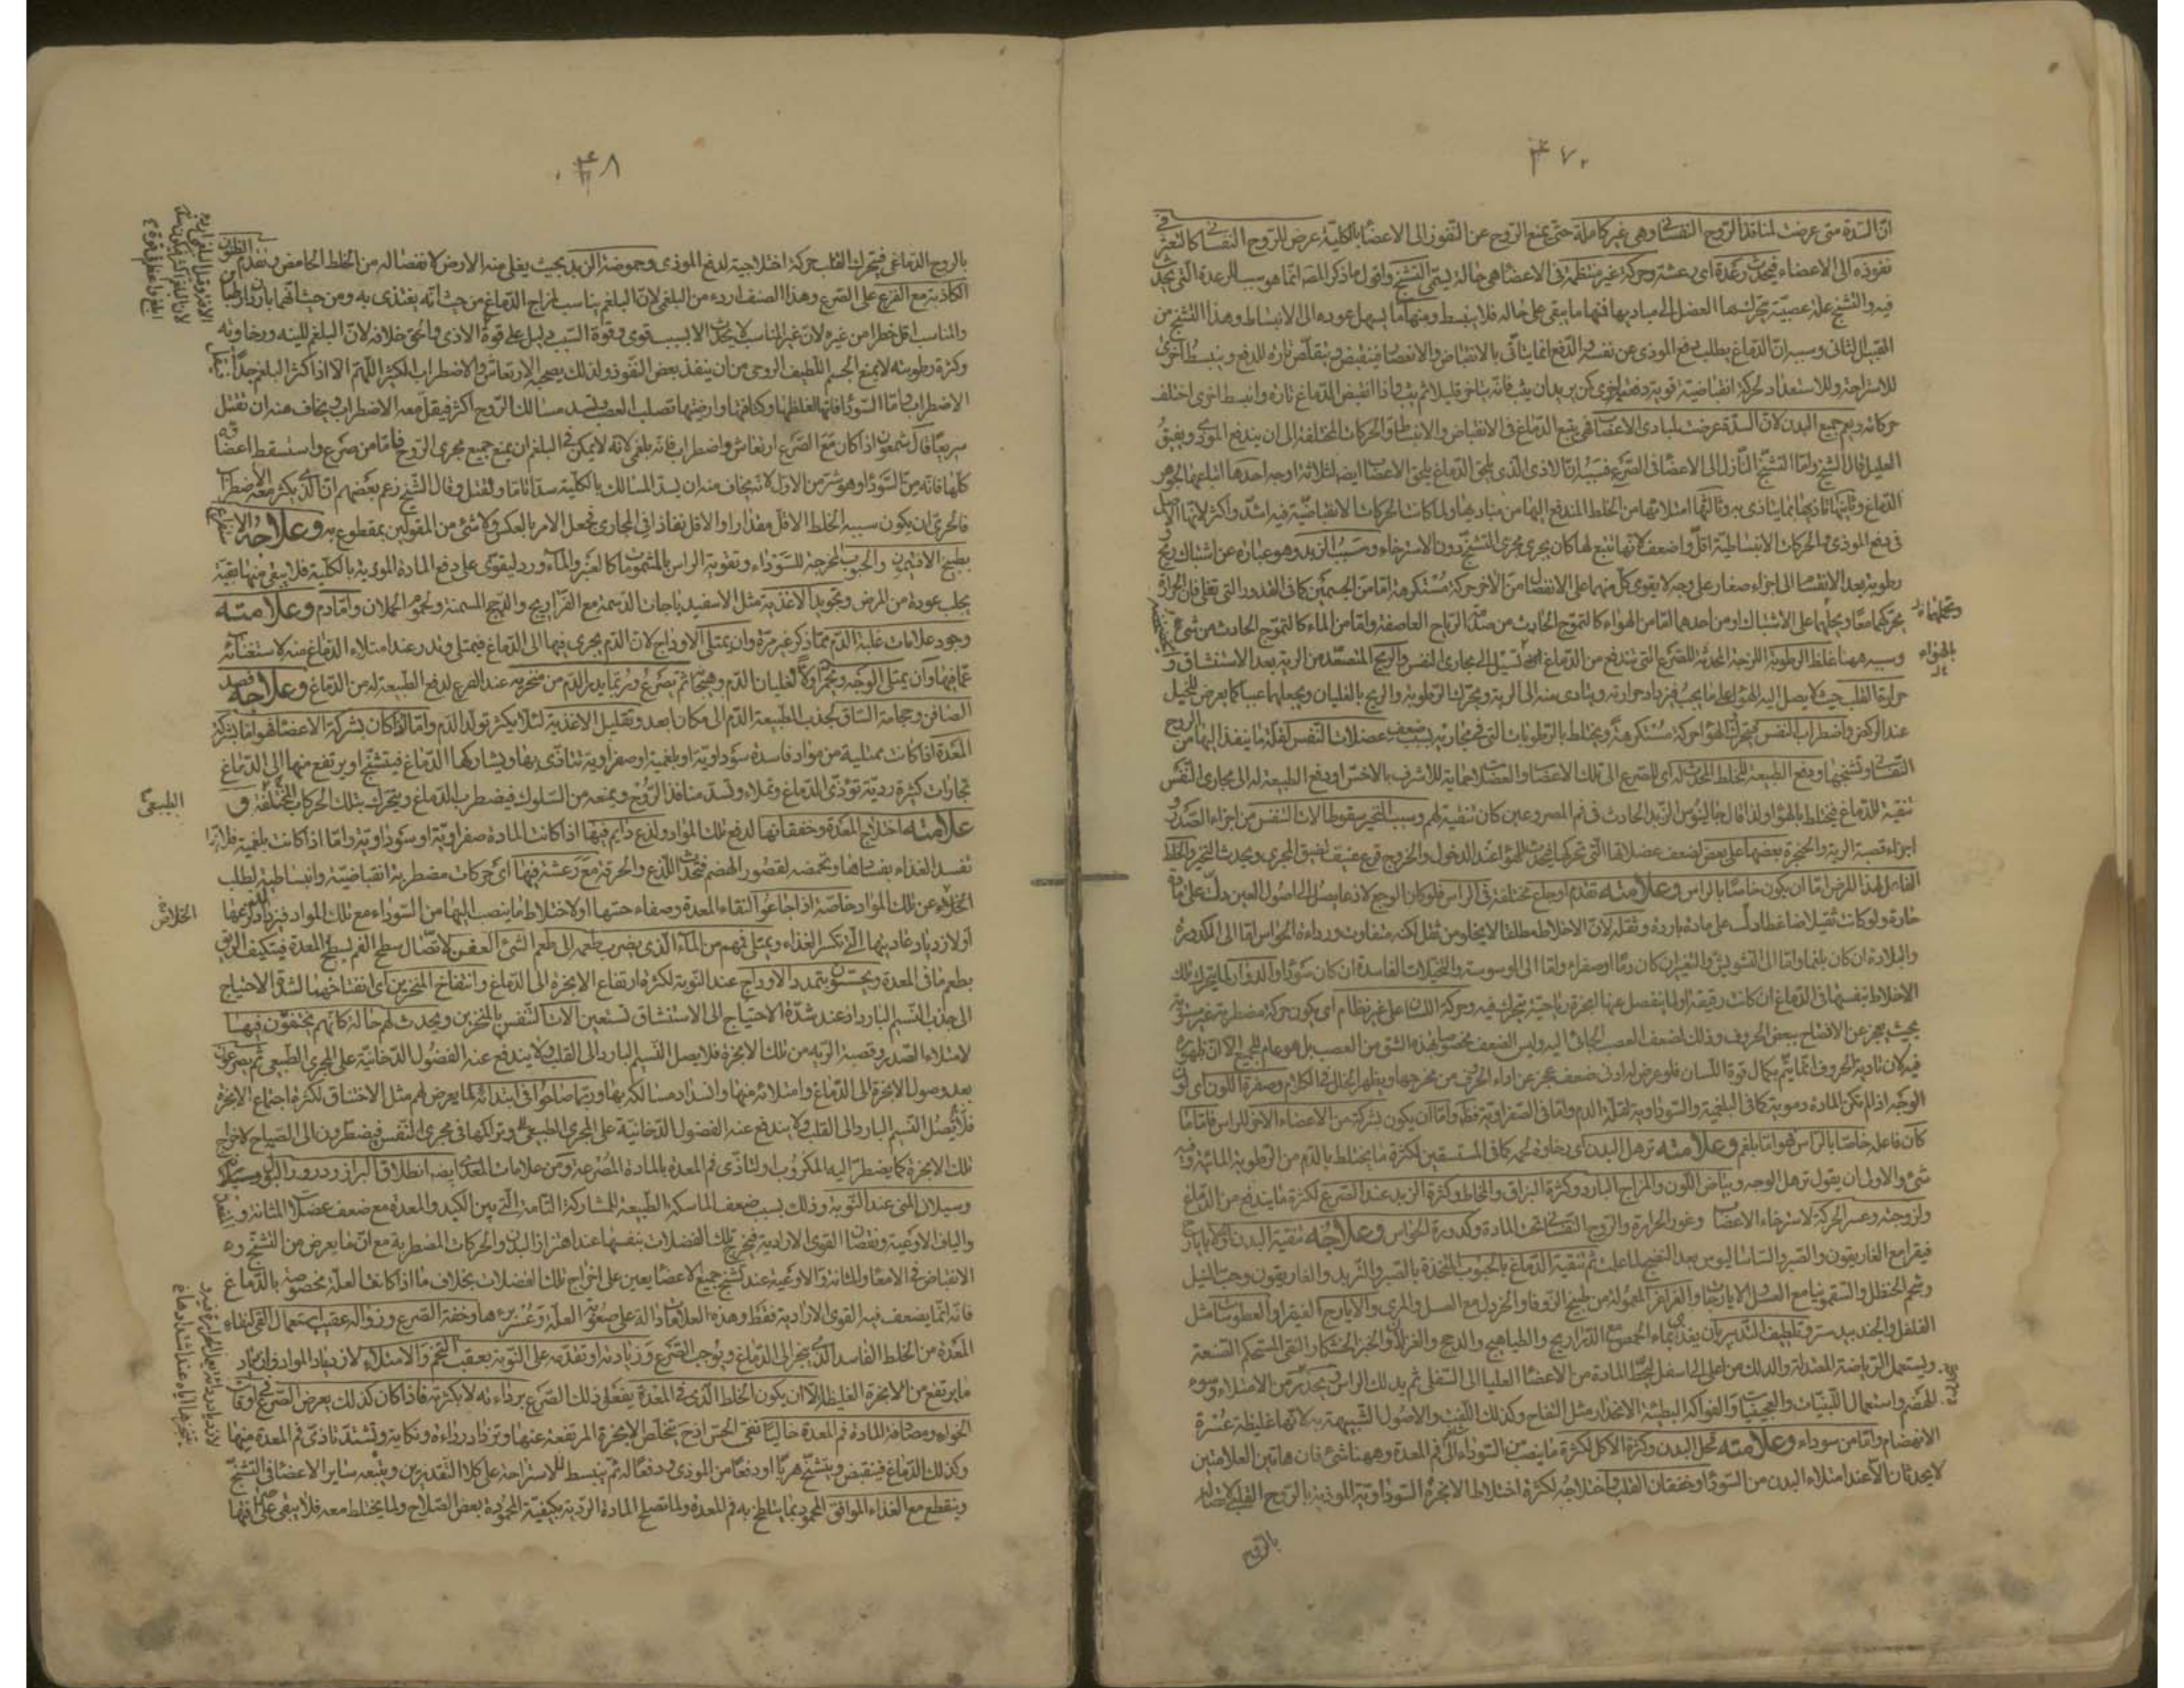 ان السدة متى عرضت لمنافذ الروح النفسانى وهى غير كاملة حتى يمنع الروح عن النفوذ الى الاعضاء بالكلية عرض للروح النفسانى كالتعثر فى
نفوذه الى الاعضاء فيحدث رعدة اى رعشة وحركة غير منتظمة فى الاعضاء هى حالة يسمى التشنج واقول ما ذكر المصـ انما هو سبب الرعدة التى يحدث
فيه والتشنج علة عصبية يتحرك بها العضل الى مباديها فمنها ما يبقى على حاله فلا ينبسط ومنها ما يسهل عوده الى الانبساط وهذا التشنج من
القبيل الثانى وسببه ان الدماغ يطلب دفع الموذى عن نفسه والدفع انما يتاتى بالانقباض والانعصار فينقبض ويتقلص تارة للدفع وينبسط اخرى
للاستراحة وللاستعداد لحركة انقباضية قوية دفعة اخرى كمن يريد ان يثب فانه يتاخر قليلا ثم يثب واذا انقبض الدماغ تارة وانبسط اخرى اختلف
حركاته ويعم جميع البدن لان السدة عرضت لمبادى الاعصاب فهى يتبع الدماغ فى الانقباض والانبساط والحركات المختلفة الى ان يندفع الموذى ويفيق
العليل قال الشيخ واما التشنج النازل الى الاعضاء فى الصرع فسببه ان الاذى الذى يلحق الدماغ يلحق الاعصاب ايضه لثلاثة اوجه احدها اتباعها لجوهر
الدماغ وثانيها تاذيها بما يتاذى به وثالثها امتلائها من الخلط المندفع اليها من مباديها ولما كانت الحركات الانقباضية فيه اشد واكثر لانها الاصل
فى دفع الموذى والحركات الانبساطية اقل واضعف لانها تتبع لها كان يجرى مجرى التشنج دون الاسترخاء وسبب الزبد وهو عبارة عن اشتباك ريح
رطوبة بعد الانقسام الى اجزاء صغار على وجه لا يقوى كل منهما على الانفصال من الاخر حركة مستكرهة اما من الجسمين كما فى القدور التى تغلى فان الحرارة
يحركهما معا ويحملهما على الاشتباك او من احدهما اما من الهواء كالتموج الحادث من الرياح العاصفة واما من الماء كالتموج الحادث من شىء
وسببه ههنا غلظ الرطوبة اللزجة المحدثة للصرع التى تندفع من الدماغ تسيل الى مجارى النفس والريح المتصعد من الرية بعد الاستنشاق و
حرارة القلب حيث لا يصل اليه الهواء على ما يجب فيزداد حرارته ويتادى منه الى الرية ويحرك الرطوبة والريح بالغليان ويجعلهما عبابا كما يعرض للخيل
عند الركض واضطراب النفس فيتحرك الهواء حركة مستكرهة ويختلط بالرطوبات التى فى مجاريه بسبب ضعف عضلات النفس لقلة ما ينفذ اليها من الروح
النفسانى وتشنجها ودفع الطبيعة للخلط المحدث له اى للصرع الى تلك الاعصاب والعضلات حماية للاشرف بالاخس او دفع الطبيعة له الى مجارى النفس
تنقية للدماغ فيختلط بالهواء ولذا قال جالينوس الزبد الحادث فى فم المصروعين كان تنقية لهم وسبب النخير سقوط الات النفس من اجزاء الصدر و
اجزاء قصبة الرية والحنجرة بعضها على بعض لضعف عضلاتها التى تحركها فيحدث للهواء عند الدخول والخروج قرع عنيف لضيق المجرى ويحدث النخير والخلط
الفاعل لهذا المرض اما ان يكون خاصا بالراس وعلامته تقدم اوجاع مختلفة فى الراس فلو كان الوجع لاذعا يصل الى اصول العين دل على مادة
حارة ولو كانت ثقيلا ضاغطا دلت على مادة باردة وثقله لان الاخلاط مطلقا لا يخلو من ثقل لكنه متفاوت ورداءة الحواس اما الى الكدورة
والبلادة ان كان بلغما واما الى التشويش والتغير ان كان دما او صفراء واما الى الوسوسة والتخيلات الفاسدة ان كان سوداء والدوار لما يتحرك تلك
الاخلاط بنفسها فى الدماغ ان كانت رقيقة او لما ينفصل عنها ابخرة رياحية يتحرك فيه وحركة اللسان على غير نظام اى يكون حركة مضطربة غير مستوية
بحيث يعجز عن الافصاح ببعض الحروف وذلك لضعف العصب الجائى اليه وليس الضعف مخصوصا بهذه الشق من العصب بل هو عام للجميع الا ان ظهوره
فيه لان تادية الحروف انما يتم بكمال قوة اللسان فلو عرض له ادنى ضعف عجز عن اداء الحرف من مخرجها ويظهر الخال فى الكلام وصفرة اللون اى لون
الوجه اذا لم تكن المادة دموية كما فى البلغمية والسوداوية لقلة الدم واما فى الصفراوية فظ واما ان يكون بشركة من الاعضاء الاخر للراس فاما ما
كان فاعله خاصا بالراس فهو اما بلغم وعلامته ترهل البدن اى رخاوة لحمه كما فى المستسقين لكثرة ما يختلط بالدم من الرطوبة المائية وفيه
شىء والاولى ان يقول ترهل الوجه وبياض اللون والمزاج البارد وكثرة البزاق والمخاط وكثرة الزبد عند الصرع لكثرة ما يندفع من الدماغ
ولزوجته وعسر الحركة لاسترخاء الاعصاب وغور الحرارة والروح النفسانى تحت المادة وكدورة الحواس وعلاجه تنقية البدن اولا بايارج
فيقرا مع الغاريقون والصبر والساساليوس بعد النضج لما علمت ثم تنقية الدماغ بالحبوب المتخذة بالصبر والتربد والغاريقون وحب النيل
وشحم الحنظل والسقمونيا مع العسل والايارجات والغراغر المعمولة من طبيخ الزوفا والخردل مع العسل والمرى والايارج الفيقرا والعطوسات مثل
الفلفل والجندبيدستر وتلطيف التدبير بان يغذى بماء الحمص مع الدراريج والطياهيج والدجج والغزلان والخبز الخشكار النقى المستحكم الصنعة
ويستعمل الرياضة المعتدلة والدلك من اعلى الى اسفل ليحط المادة من الاعضاء العليا الى السفلى ثم يدلك الراس ويحذر من الامتلاء وسوء
الهضم واستعمال اللبنيات والعجينيات والفواكه البطيئة الانحدار مثل التفاح وكذلك اللفت والاصول الشبيهة به لانها غليظة عسرة
الانهضام واما من سوداء وعلامته نحل البدن وكثرة الاكل لكثرة ما ينصب من السوداء الى فم المعدة وههنا شىء فان هاتين العلامتين
لا يحدثان الا عند امتلاء البدن من السوداء وخفقان القلب واختلاجه لكثرة اختلاط الابخرة السوداوية الموذية بالروح القلبى لاتصاله
بالروح
بالروح الدماغى فيتحرك القلب حركة اختلاجية لدفع الموذى وحموضة الزبد بحيث يغلى منه الارض لانفصاله من الخلط الحامض وتقدم الظنون
الكاذبة مع الفزع على الصرع وهذا الصنف اردء من البلغمى لان البلغم يناسب لمزاج الدماغ من حيث انه يغتذى به ومن حيث انهما باردان رطبان
والمناسب اقل خطرا من غيره لان غير المناسب لا يحدث الا بسبب قوى وقوة السبب دليل على قوة الاذى والحق خلافه لان البلغم للينه ورخاوته
وكثرة رطوبته لا يمنع الجسم اللطيف الروحى من ان ينفذ بعض النفوذ ولذلك يصحبه الارتعاش والاضطراب الكثير اللهم الا اذا كثر البلغم جدا
الاضطراب واما السوداء فانها لغلظها وكثافتها وارضيتها تصلب العصب وتسد مسالك الروح اكثر فيقل معه الاضطراب ويخاف منه ان تقتل
سريعا قال شمعون اذا كان مع الصرع ارتعاش واضطراب فانه بلغمى لانه لا يمكن فى البلغم ان يمنع جميع مجرى الروح فاما من صرع واستسقط اعضاؤه
كلها فانه من السوداء وهو شر من الاول لانه يخاف منه ان يسد المسالك بالكلية سدا تاما ولقتل وقال الشيخ زعم بعضهم ان الذى يكثر معه الاضطراب
فالحرى ان يكون سببه الخلط الاقل مقدارا والاقل نفاذا فى المجارى فجعل الامر بالعكس ولا شىء من المقولين بمقطوع به وعلاجه الاستفراغ
بطبيخ الافتيمون والحبوب المخرجة للسوداء وتقوية الراس بالمشمومات كالعنبر والماءورد ليقوى على دفع المادة الموذية بالكلية فلا يبقى منها بقية
يجلب عودة من المرض وتجويد الاغذية مثل الاسفيدباجات الدسمة مع الفراريج والدجج المسمنة ولحوم الحملان واما دم وعلامته
وجود علامات غلبة الدم مما ذكر غير مرة وان يمتلى الاوداج لان الدم يجرى فيها الى الدماغ فيمتلى ويتدر عند امتلاء الدماغ منه لاستغنائه
عما فيها وان يمتلى الوجه ويحمر اولا لغليان الدم وهيجانه ثم يصرع وربما يدر الدم من منخريه عند الصرع لدفع الطبيعة له من الدماغ وعلاجه فصد
الصافن وحجامة الساق لجذب الطبيعة الدم الى مكان ابعد وتقليل الاغذية لئلا يكثر تولد الدم واما اذا كان بشركة الاعضاء فهو اما بشركة
المعدة اذا كانت ممتلية من مواد فاسدة سوداوية او بلغمية او صفراوية تتاذى بها ويشاركها الدماغ فيتشنج او يرتفع منها الى الدماغ
بخارات كثيرة ردية تؤذى الدماغ وتملاءه وتسد منافذ الروح ويمنعه من السلوك فيضطرب الدماغ ويتحرك بتلك الحركات المختلفة و
علامته اختلاج المعدة وخفقانها لدفع تلك المواد ولذع دايم فيها اذا كانت المادة صفراوية او سوداوية واما اذا كانت بلغمية فلانها
تفسد الغذاء بفسادها وتحمضه لقصور الهضم فيحدث اللذع والحرقة مع رعشة فيها اى حركات مضطربة انقباضية وانبساطية لطلب
الخلاص عن تلك المواد خاصة اذا جاعوا لنقاء المعدة وصفاء حسها او لاختلاط ما ينصب اليها من السوداء مع تلك المواد فيزداد لذعها
او لازدياد عاديتها التى تكسر الغذاء ويمتلى فمهم من الماء الذى يضرب طعمه الى طعم الشىء العفن لاتصال سطح الفم لسطح المعدة فيتكيف الريق
بطعم ما فى المعدة ويحسون بتمدد الاوداج عند النوبة لكثرة ارتفاع الابخرة الى الدماغ وانتفاخ المنخرين اى انفتاحهما لشدة الاحتياج
الى جذب النسيم البارد اذ عند شدة الاحتياج الى الاستنشاق تستعين الات التنفس بالمنخرين ويحدث لهم حالة كانهم يختنقون فيها
لامتلاء الصدر وقصبة الرية من تلك الابخرة فلا يصل النسيم البارد الى القلب ولا يندفع عنه الفضول الدخانية على المجرى الطبيعى ثم يصرعون
بعد وصول الابخرة الى الدماغ وامتلائه منها وانسداد مسالكه بها وربما صاحوا فى ابتدائه لما يعرض لهم مثل الاختناق لكثرة اجتماع الابخرة
فلا يصل النسيم البارد الى القلب ولا يندفع عنه الفضول الدخانية على المجرى الطبيعى وتراكمها فى مجرى النفس فيضطرون الى الصياح لاخراج
تلك الابخرة كما يضطر اليه المكروب او لتاذى فم المعدة بالمادة المصرعة ومن علامات المعدى ايضه انطلاق البراز ودرور البول وسيلان
وسيلان المنى عند النوبة وذلك بسبب ضعف الماسكة الطبيعية للمشاركة التامة التى بين الكبد والمعدة مع ضعف عضلات المثانة و
والياف الاوعية ونقصان القوى الارادية فيخرج تلك الفضلات بنفسها عند اهتزاز البدن والحركات المضطربة مع ان ما يعرض من التشنج و
الانقباض فى الامعاء والمثانة والاوعية عند تشنج جميع الاعضاء يعين على اخراج تلك الفضلات بخلاف ما اذا كانت العلة مخصوصة بالدماغ
فانه انما يضعف فيه القوى الارادية فقط وهذه العلامات دالة على صعوبة العلة وعسر برءها وخفة الصرع وزواله عقيب استعمال القى لنقاء
المعدة من الخلط الفاسد الذى يتبخر الى الدماغ ويوجب الصرع وزيادته او تقدمه على النوبة بعقب التخم والامتلاء لازدياد المواد وازدياد
ما يرتفع من الابخرة الغليظة الا ان يكون الخلط الذى فى المعدة يفعل ذلك الصرع برداءته لا بكثرته فاذا كان كذلك يعرض الصرع فى اوقات
الخواء ومصادفة المادة فم المعدة خاليا نقى الحس اذ ح يتخلص الابخرة المرتفعة عنها وتزداد رداءة ونكاية وتشتد تاذى فم المعدة منها
وكذلك الدماغ فينقبض ويتشنج هربا او دفعا من الموذى ودفعا له ثم ينبسط للاستراحة على كلا التقديرين ويتبعه ساير الاعضاء فى التشنج
وينقطع مع الغذاء الموافق المحمود بما يتلطخ به فم المعدة ولما تصلح المادة الردية بكيفية المحمودة بعض الصلاح ولما يختلط معه فلا يبقى على صرافتها